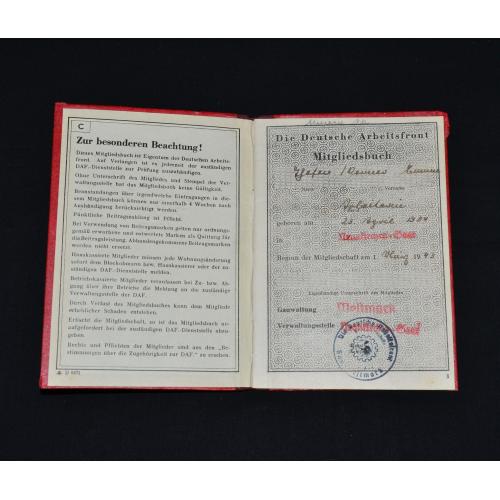 C
Zur besonderen Beachtung!
Dieses Mitgliedsbuch ist Eigentum der Deutschen Arbeits-
front. Auf Verlangen ist es jederzeit der zuständigen
DAF.-Dienststelle zur Prüfung auszuhändigen.
Ohne Unterschrift des Mitgliedes und Stempel der Ver-
waltungsstelle hat das Mitgliedsbuch keine Gültigkeit.
Beanstandungen über irgendwelche Eintragungen in die-
sem Mitgliedsbuch können nur innerhalb 4 Wochen nach
Aushändigung berücksichtigt werden.
Pünktliche Beitragszahlung ist Pflicht.
Bei Verwendung von Beitragsmarken gelten nur ordnungs-
gemäß erworbene und entwertete Marken als Quittung für
die Beitragsleistung. Abhandengekommene Beitragsmarken
werden nicht ersetzt.
Hauskassierte Mitglieder müssen jede Wohnungsänderung
sofort dem Blockobmann bzw. Hauskassierer oder der zu-
ständigen DAF.-Dienststelle melden.
Betriebskassierte Mitglieder veranlassen bei Zu- bzw. Ab-
gang über ihre Betriebe die Meldung an die zuständige
Verwaltungsstelle der DAF.
Durch Verlust des Mitgliedsbuches kann dem Mitgliede
erheblicher Schaden entstehen.
Erlischt die Mitgliedschaft, so ist das Mitgliedsbuch un-
aufgefordert bei der zuständigen DAF.-Dienststelle abzu-
geben.
Rechte und Pflichten der Mitglieder sind aus den „Be-
stimmungen über die Zugehörigkeit zur DAF." zu ersehen.
Die Deutsche Arbeitsfront
Mitgliedsbuch
Name
Vorname
geboren am 23. April 1904
in
Beginn der Mitgliedschaft am 1. März 1943
Eigenhändige Unterschrift des Mitgliedes
Gauwaltung Westmark
Verwaltungsstelle